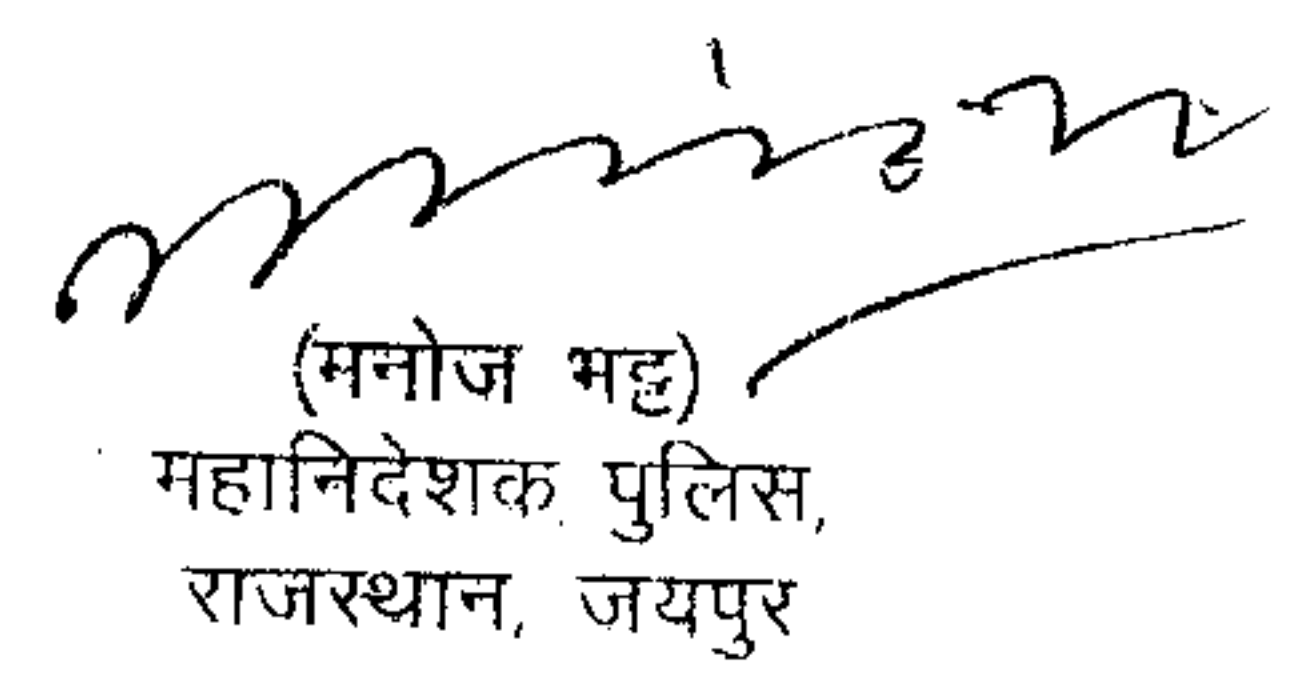 (मनोज भट्ट)
महानिदेशक पुलिस,
राजस्थान, जयपुर